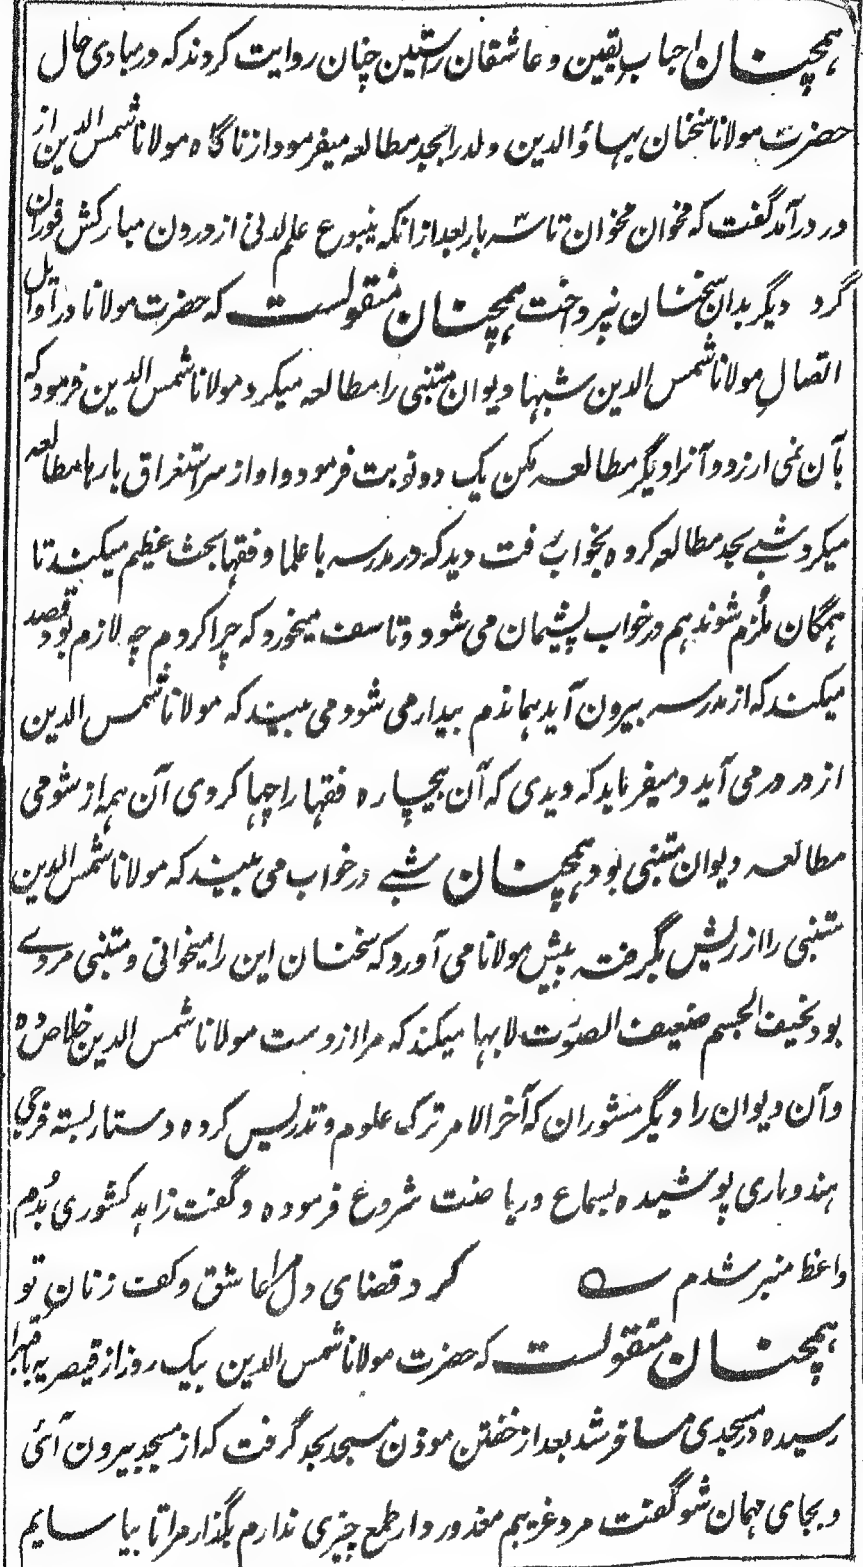 همچنان احباب یقین و عاشقان راستین چنان روایت کردند که در مبادی حال
حضرت مولانا سخنان بهاؤ الدین ولد را بجد مطالعه میفرمود از ناگاه مولانا شمس الدین از
در درآمد گفت که مخوان مخوان تا سه بار بعد از انکه ینبوع علم لدنی از درون مبارکش فوران
گرد دیگر بدان سخنان نپرداخت همچنان منقولست که حضرت مولانا در اوایل
اتصال مولانا شمس الدین شبها دیوان متنبی را مطالعه میکرد مولانا شمس الدین فرمود که
بآن نمی ارزد و آنرا دیگر مطالعه مکن یک دو نوبت فرمود و او از سر استغراق باز ها مطالعه
میکرد شبے بجد مطالعه کرده بخواب رفت دید که در مدرسه با علما و فقها بحث عظیم میکند تا
همگان ملزم شوند هم در خواب پشیمان می شود و تاسف میخورد که چرا کردم چه لازم بود قصد
میکند که از مدرسه بیرون آید هماندم بیدار می شود می بیند که مولانا شمس الدین
از در در می آید و میفرماید که دیدی که آن بیچاره فقها را چها کردی آن همه از شومی
مطالعه دیوان متنبی بود همچنان شبے در خواب می بیند که مولانا شمس الدین
متنبی را از ریش بگرفته پیش مولانا می آورد که سخنان این را میخوانی و متنبی مردے
بود نحیف الجسم ضعیف الصوت لابها میکند که مرا از دست مولانا شمس الدین خلاص ده
و آن دیوان را دیگر مشوران که آخر الامر ترک علوم و تدریس کرده دستار بسته فرجی
هندوباری پوشیده بسماع و ریاضت شروع فرموده و گفت زاهد کشوری بدم
واعظ منبر شدم کرد قضای دل مرا عاشق و کف زنان تو
همچنان منقولست که حضرت مولانا شمس الدین یک روز از قیصریه باقسرا
رسیده در مسجدی مسافر شد بعد از خفتن موذن مسجد بجد گرفت که از مسجد بیرون آئی
و بجای مهمان شو گفت مرد غریبم معذور دار طمع چیزی ندارم بگذار مرا تا بیاسایم